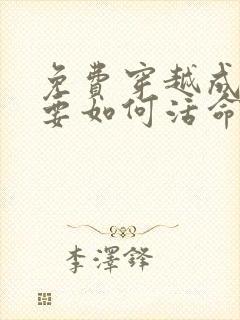 免費穿越成
要如何活命
李澤鋒